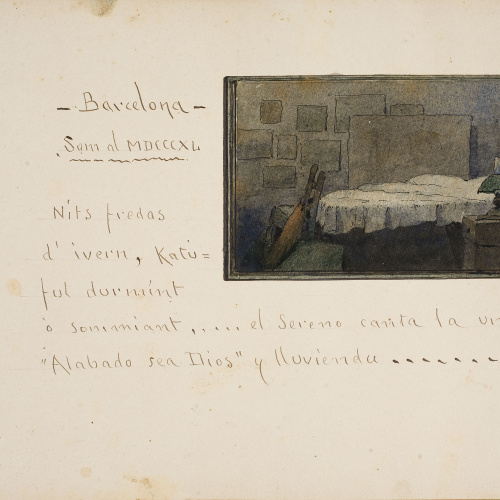 - Barcelona -
Som al MDCCCXL
Nits fredas
d' ivern, Katú=
ful durmint
ò somniant,.... el Sereno canta la un
"Alabado sea Dios" y lluviendu - - - - - - -